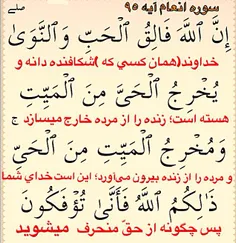 سوره انعام آیه ۹۵
صلے
إِنَّ ٱللَّهَ فَالِقُ ٱلْحَبِّ وَٱلنَّوَىٰ
خداوند(همان کسی که )شکافنده دانه و
يُخْرِجُ ٱلْحَىَّ مِنَ ٱلْمَيِّتِ
هسته است؛ زنده را از مرده خارج میسازد ج
وَمُخْرِجُ ٱلْمَيِّتِ مِنَ ٱلْحَىِّ
و مرده را از زنده بیرون می‌آورد؛ این است خدای شما
ذَٰلِكُمُ ٱللَّهُ فَأَنَّىٰ تُؤْفَكُونَ
پس چگونه از حق منحرف میشوید